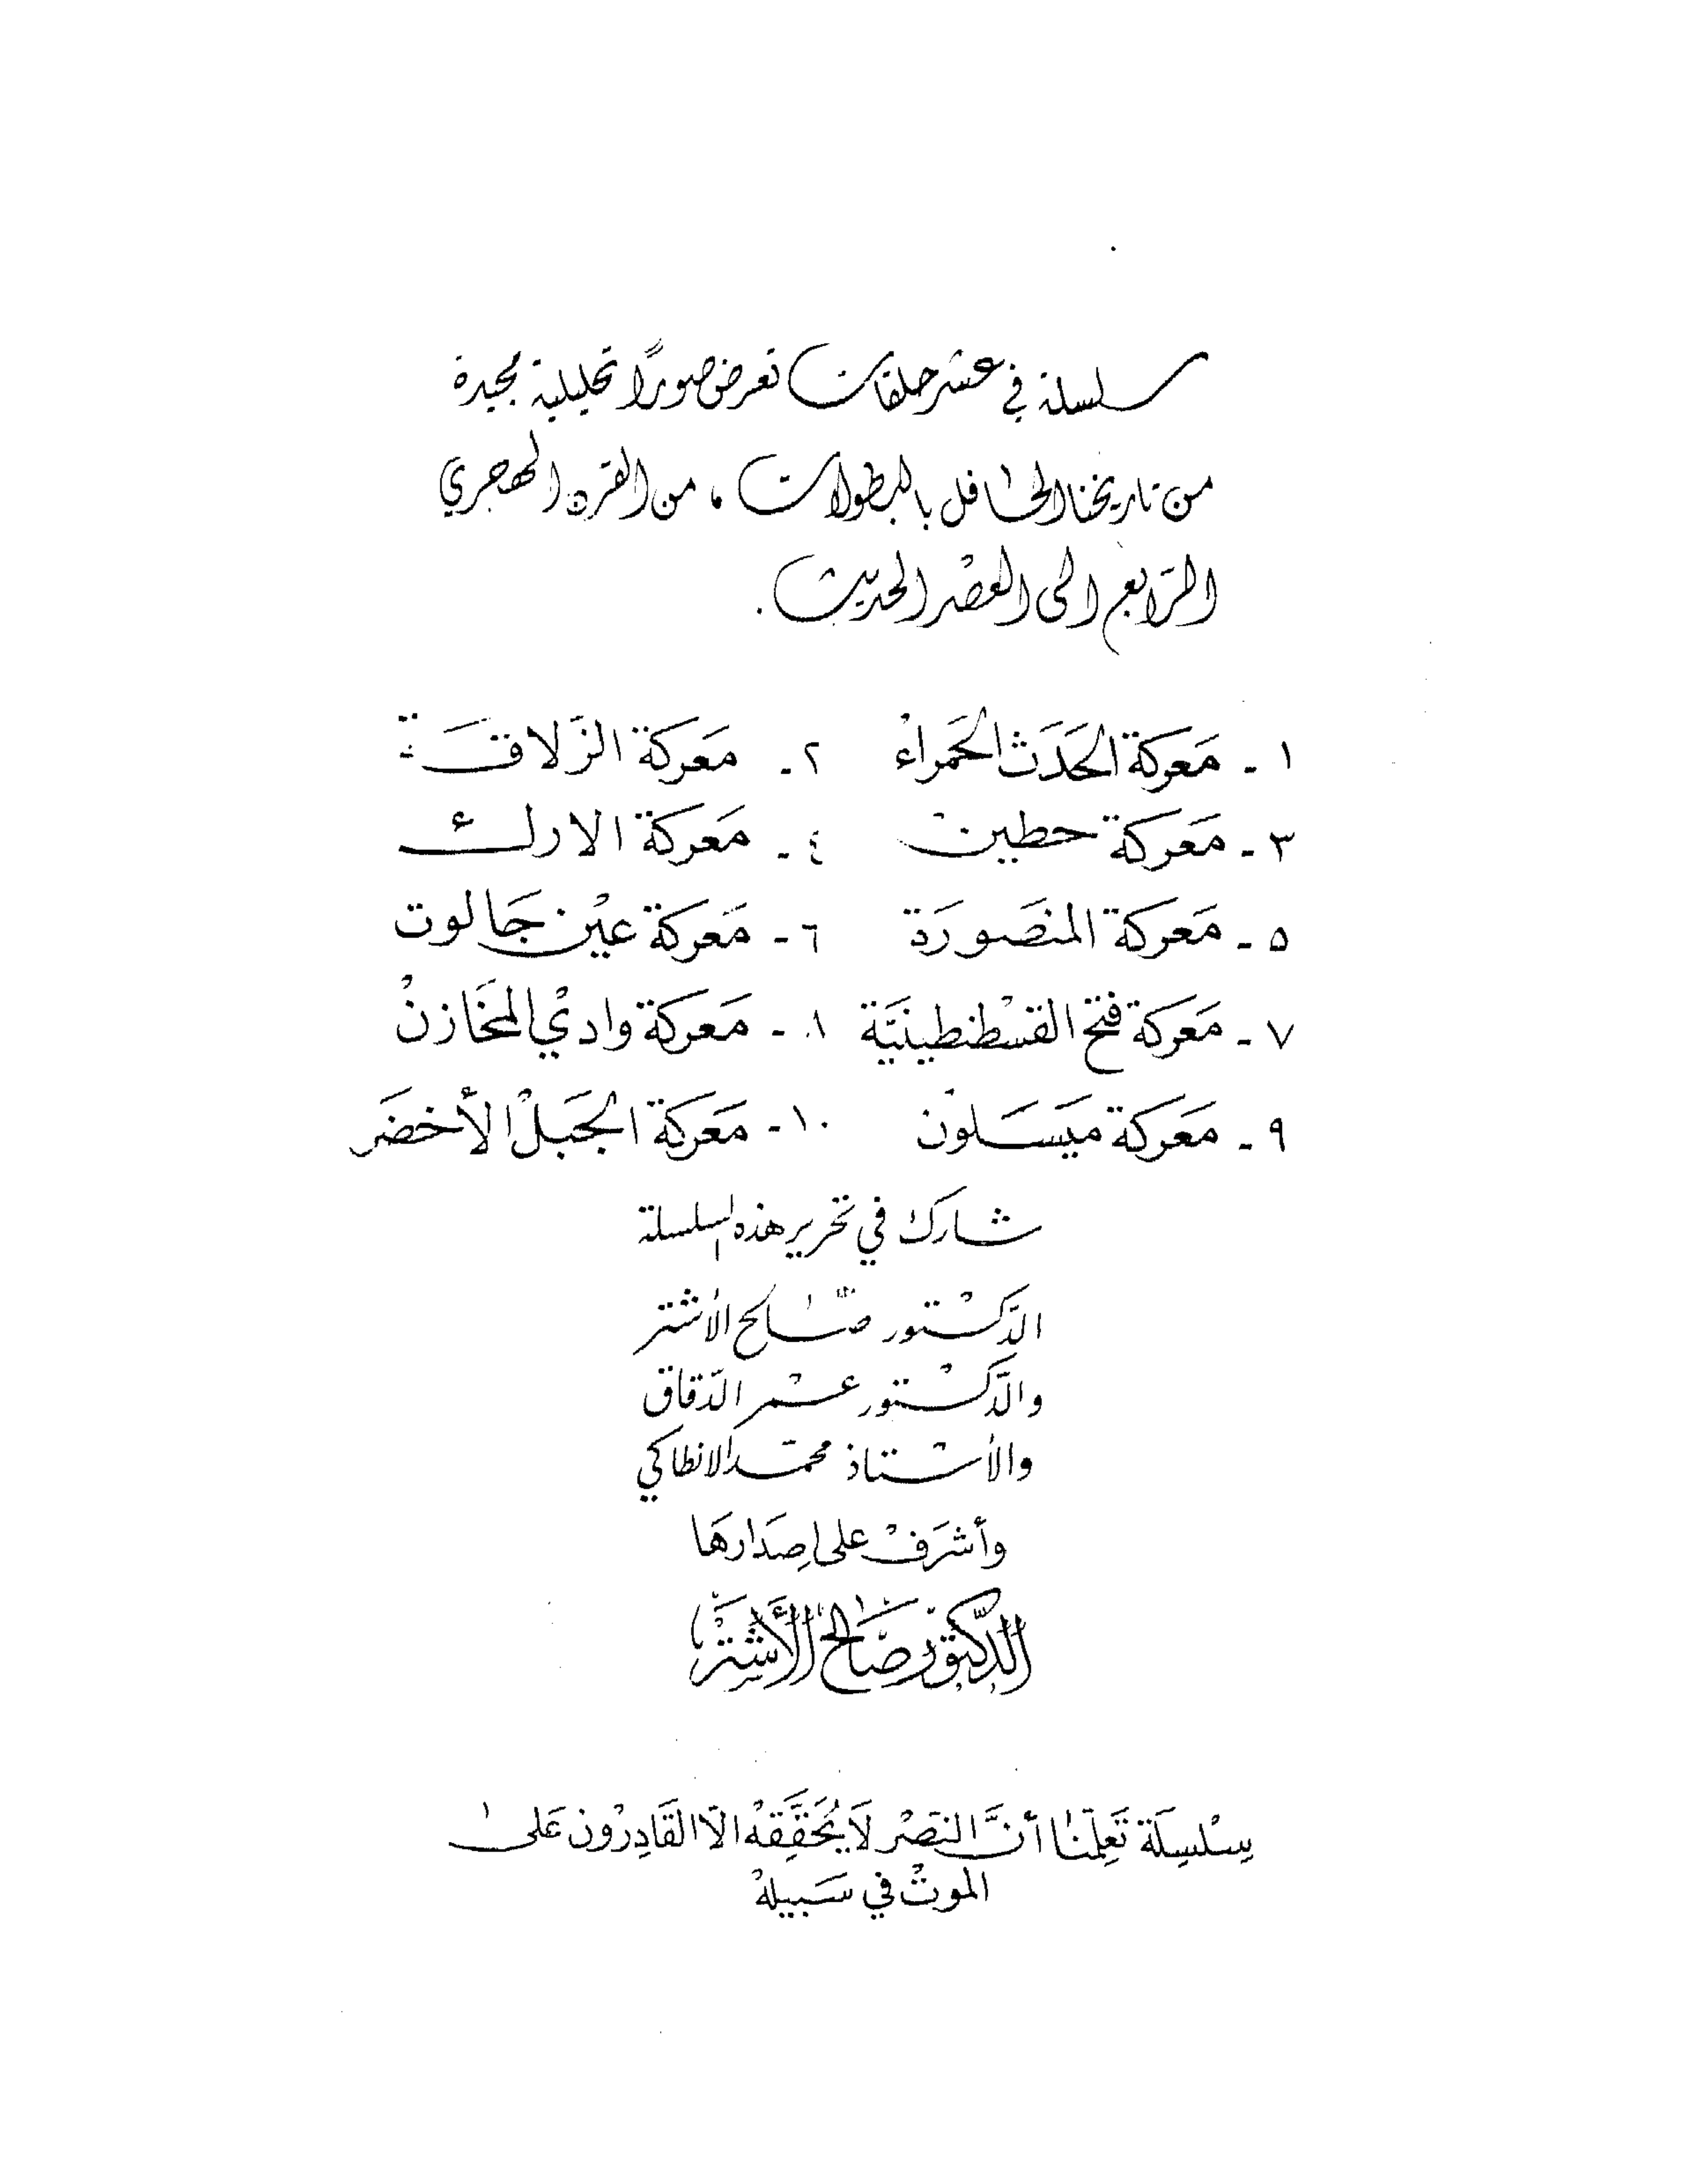 سلسلة في عشر حلقات تعرض صورًا تحليلية مجيدة
من تاريخنا الحافل بالبطولات ، من القرن الهجري
الرَابع الى العصْر الحديث .
١ - مَعركة الحَدَث الحَمراءْ ٢ - مَعركة الزَلاقَـة
٣ - مَعركة حطين ٤ - مَعركة الارك
٥ - مَعركة المنصَورَة ٦ - مَعركة عيْن جَالوت
٧ - مَعركة فتْح القسْطنطينيَّة ٨ - مَعركة واديْ المخَازنْ
٩ - مَعركة ميَسَـلوْن ١٠ - مَعركة الجَبَلْ الأخضَر
شارك في تحرير هذه السلسلة
الدَّكـتور صَـالح الأشتر
والدَّكـتور عـمر الدّقاق
والأسـتاذ محمّـد الانطاكي
وأشرَفْ على اِصدَارهَا
الدّكتوْر صَالح الأَشْتَر
سِلْسِلَة تَعِلّمنَا أنَّ النصْر لَا يُحَقِّقهْ الّا القَادِرْون عَلى
الموتْ في سَبيلهْ